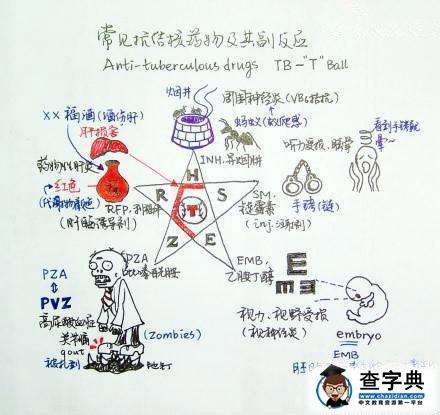 常见抗结核药物及其副反应
Anti-tuberculous drugs TB-"T" Ball
烟井
周围神经炎(VB6拮抗)
蚂蚁(蚁爬感)
INH,异烟肼
XX福酒(酒伤肝)
肝损害
药物性肝炎
红色
(代谢物颜色)
RFP,利福平
(肝酶诱导剂)
听力受损,眩晕
看到手铐就晕~
SM,
链霉素
(inj.注射剂)
手铐(链)
H
R
S
T
Z
E
PZA
吡嗪酰胺
EMB,
乙胺丁醇
E
m
视力、视野受损
(视神经炎)
embryo
EMB
PZA
PVZ
高尿酸血症
关节痛
gout
被扎到
(Zombies)
地刺
查字典
www.chazidian.com
中文教育资源第一平台